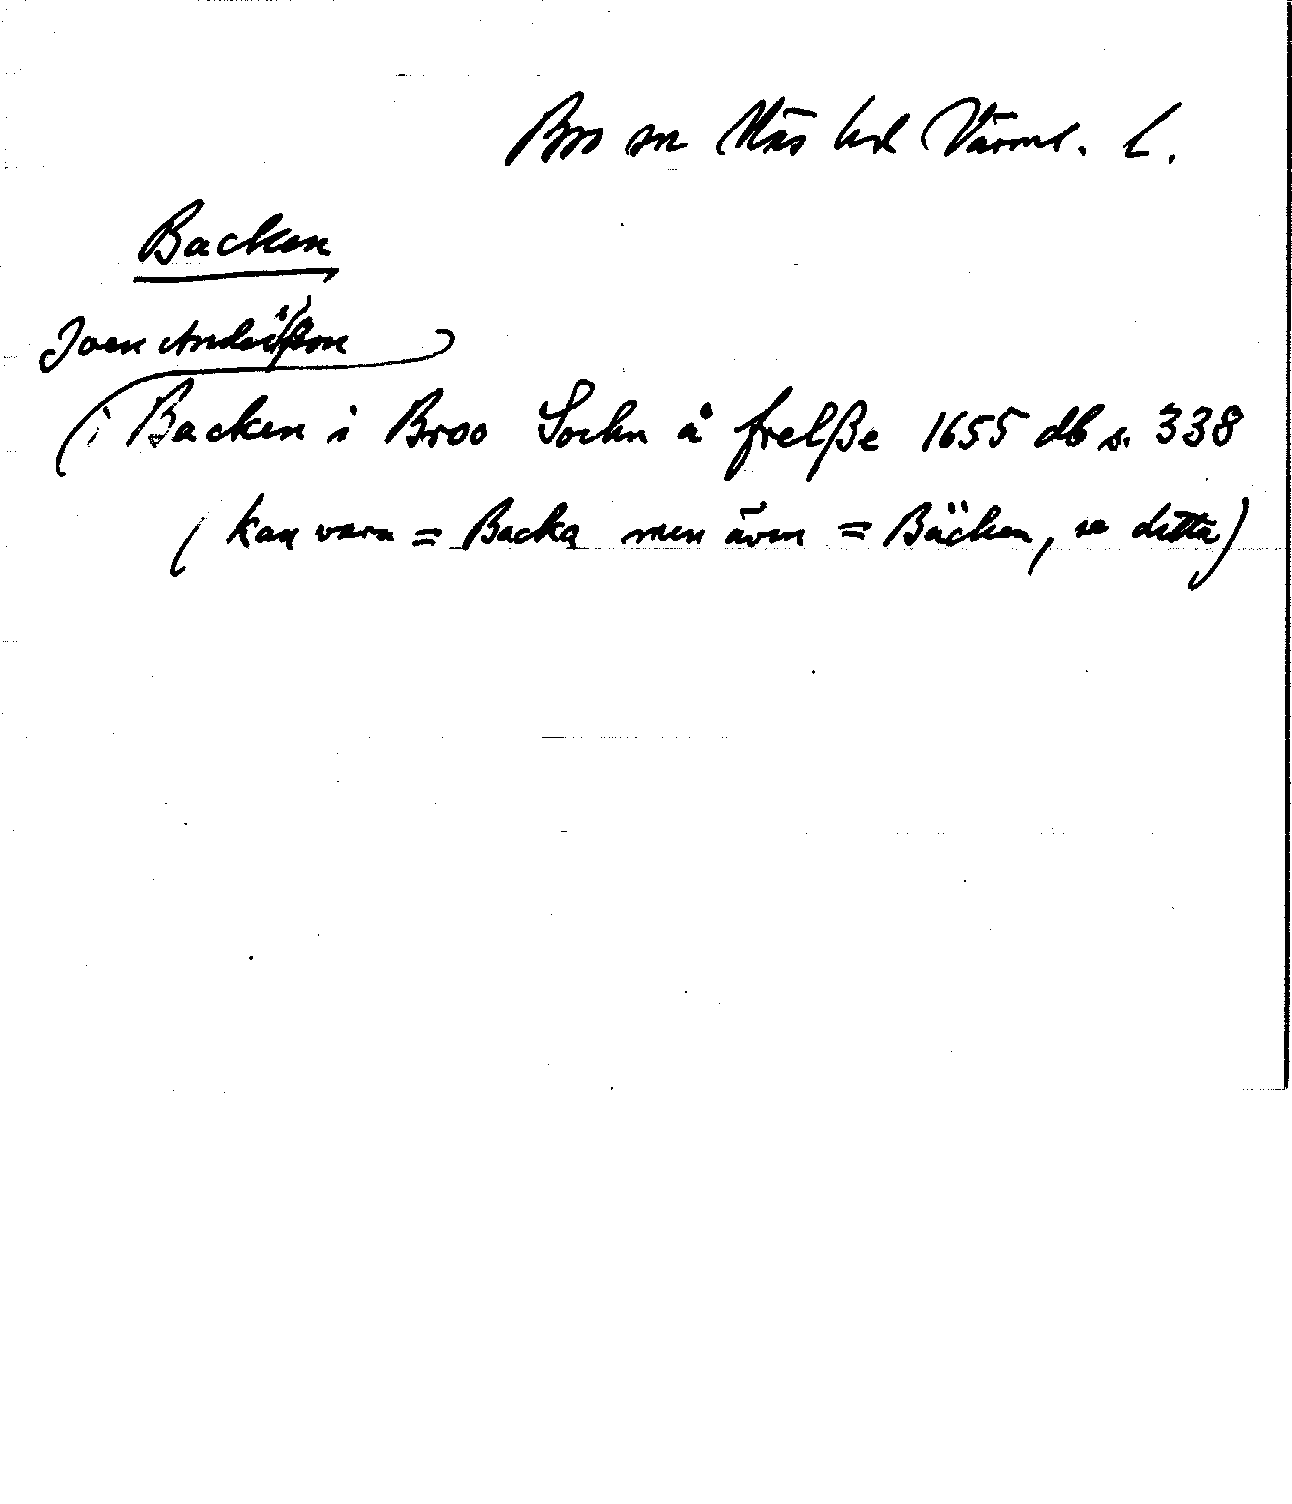 Bro sn Näs hd Värml. L.
Backen
Joen Anderßon
i Backen i Broo Sochn å frelße 1655 db s. 338
(kan vara = Backa men även = Bäcken, se detta)